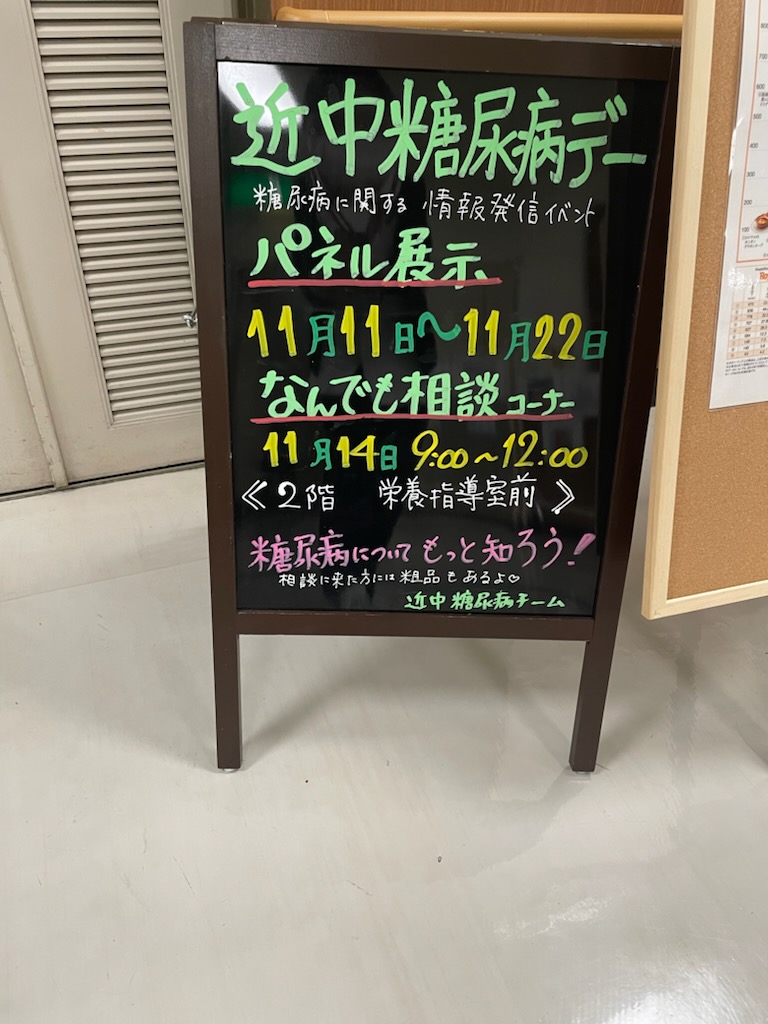 近中糖尿病デー
糖尿病に関する 情報発信イベント
パネル展示
11月11日〜11月22日
なんでも相談コーナー
11月14日 9:00〜12:00
《2階 栄養指導室前》
糖尿病について もっと知ろう!
相談に来た方には粗品もあるよ♡
近中糖尿病チーム